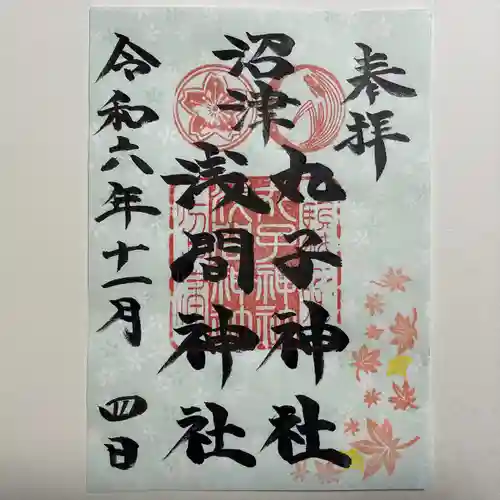 奉拝
沼津
丸子神社
浅間神社
令和六年十一月四日